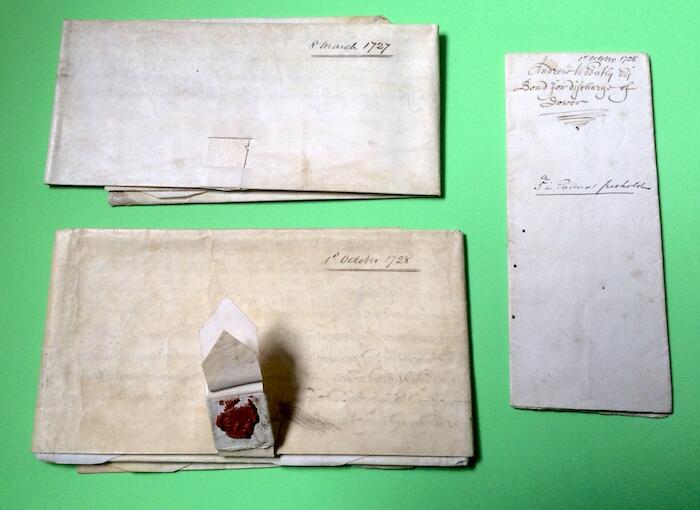 8 March 1727
1st October 1728
1st October 1728
Andrew Wheatly his
Bond for discharge of
Dower
a
5 in freehold